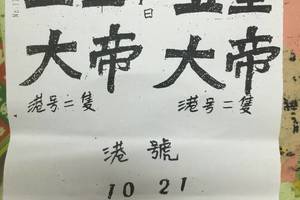 日
大帝 大帝
港号二隻 港号二隻
港號
10 21